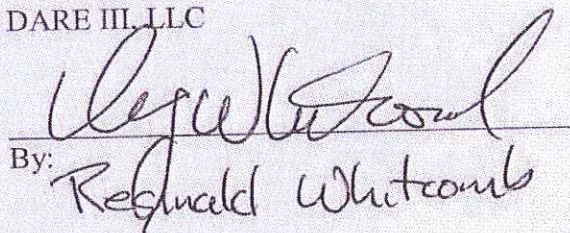 DARE III, LLC
Reg Whitcomb
By:
Reginald Whitcomb